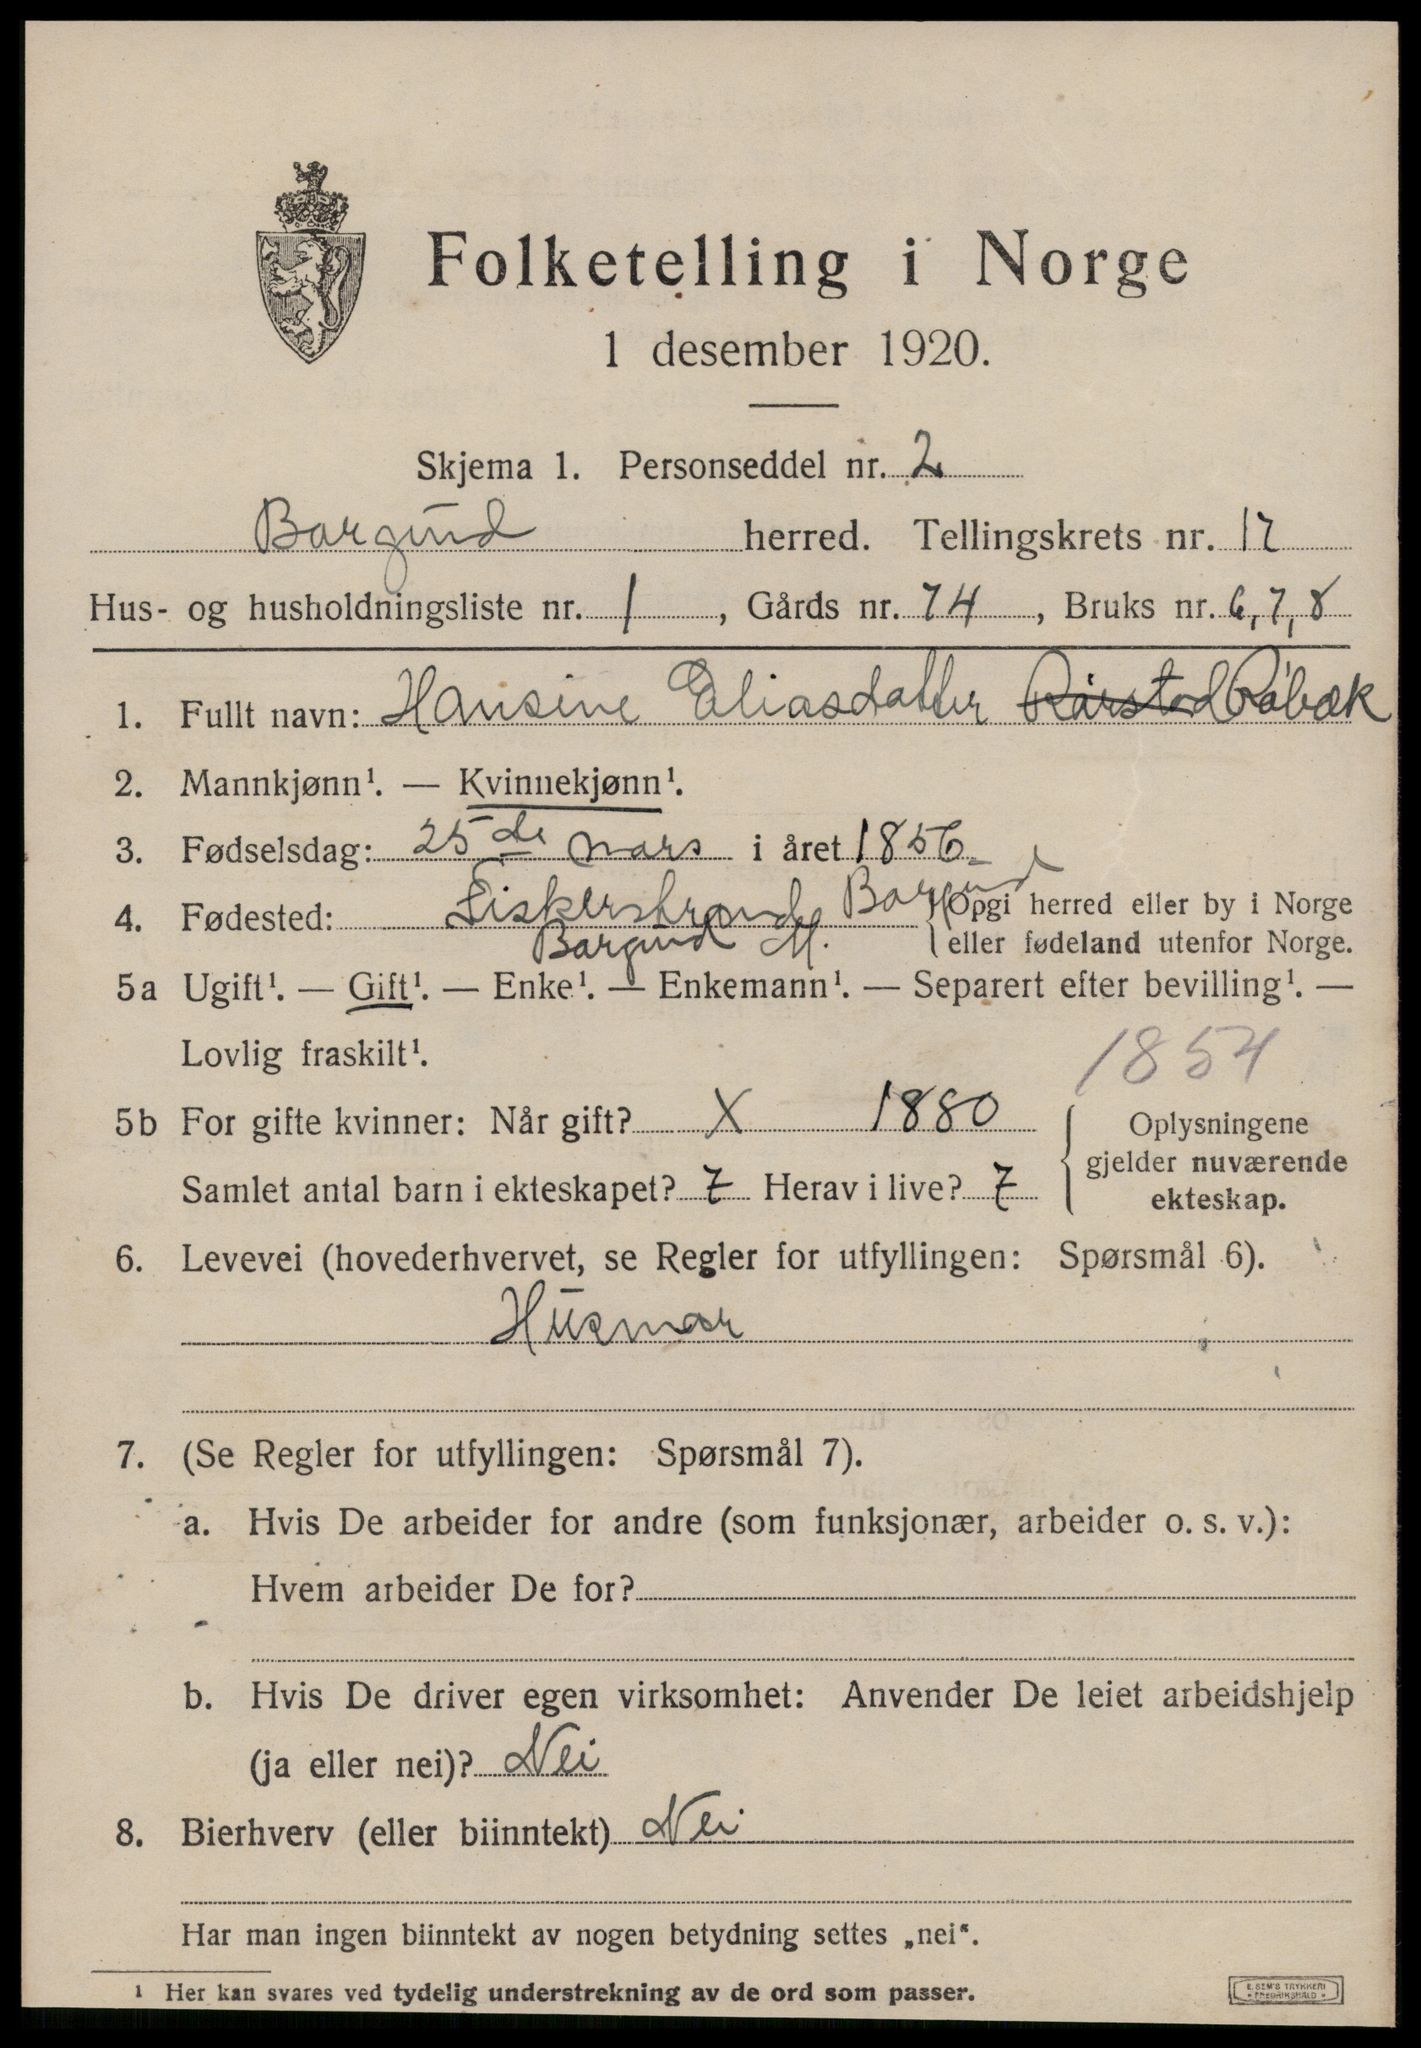 Folketelling i Norge
1 desember 1920.
Skjema 1. Personseddel nr. 2
Borgund herred. Tellingskrets nr. 17
Hus- og husholdningsliste nr. 1, Gårds nr. 74, Bruks nr. 6,7,8
1. Fullt navn: Hansine Eliasdatter Råbæk
2. Mannkjønn¹. — Kvinnekjønn¹.
3. Fødselsdag: 25de mars i året 1856
4. Fødested: Fiskerstrand Borgund { Opgi herred eller by i Norge
Borgund M. eller fødeland utenfor Norge.
5a Ugift¹. — Gift¹. — Enke¹. — Enkemann¹. — Separert efter bevilling¹. —
Lovlig fraskilt¹. 1854
5b For gifte kvinner: Når gift? X 1880 { Oplysningene
gjelder nuværende
Samlet antal barn i ekteskapet? 7 Herav i live? 7
ekteskap.
6. Levevei (hovederhvervet, se Regler for utfyllingen: Spørsmål 6).
Husmor
7. (Se Regler for utfyllingen: Spørsmål 7).
a. Hvis De arbeider for andre (som funksjonær, arbeider o. s. v.):
Hvem arbeider De for?
b. Hvis De driver egen virksomhet: Anvender De leiet arbeidshjelp
(ja eller nei)? Nei
8. Bierhverv (eller biinntekt) Nei
Har man ingen biinntekt av nogen betydning settes „nei“.
¹ Her kan svares ved tydelig understrekning av de ord som passer.
E. SEM'S TRYKKERI
FREDRIKSHALD